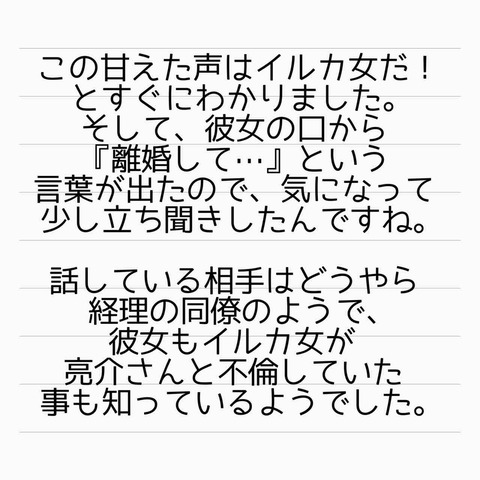 この甘えた声はイルカ女だ！
とすぐにわかりました。
そして、彼女の口から
『離婚して…』という
言葉が出たので、気になって
少し立ち聞きしたんですね。
話している相手はどうやら
経理の同僚のようで、
彼女もイルカ女が
亮介さんと不倫していた
事も知っているようでした。